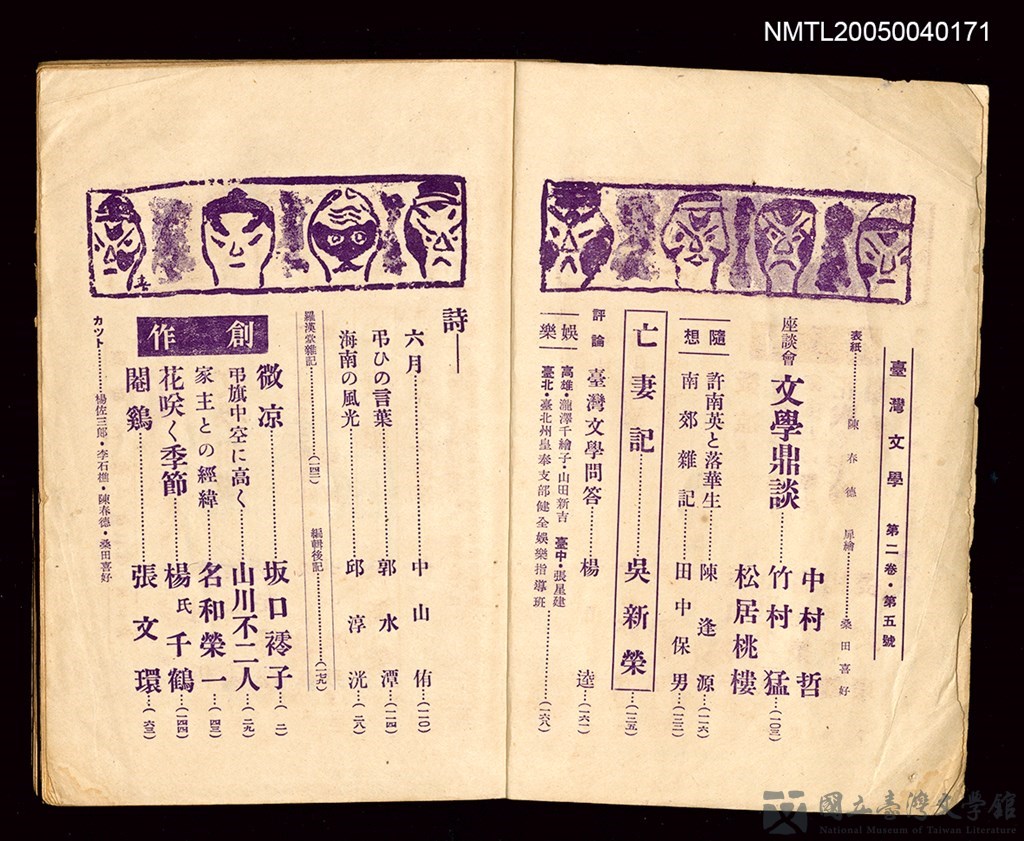 NMTL20050040171
臺灣文學 第二卷・第五號
表紙……陳春德 扉繪……桑田喜好
座談會 文學鼎談……中村哲
竹村猛…(一〇三)
松居桃樓
隨想
許南英と落華生……陳逢源…(一一六)
南郊雜記……田中保男…(一三二)
亡妻記……吳新榮…(一三五)
評論 臺灣文學問答……楊逵…(一六一)
娛樂
高雄・瀧澤千繪子・山田新吉 臺中・張星建
臺北・臺北州皇奉支部健全娛樂指導班……(一六八)
詩——
六月……中山侑…(一一〇)
弔ひの言葉……郭水潭…(一一四)
海南の風光……邱淳洸…(二八)
羅漢堂雜記……(一四二) 編輯後記……(一七九)
創作
微凉……坂口䙥子…(二)
弔旗中空に高く……山川不二人…(二九)
家主との經緯……名和榮一…(四三)
花咲く季節……楊氏千鶴…(一四四)
閹鷄……張文環…(六三)
カツト……楊佐三郎・李石樵・陳春德・桑田喜好
國立臺灣文學館
National Museum of Taiwan Literature